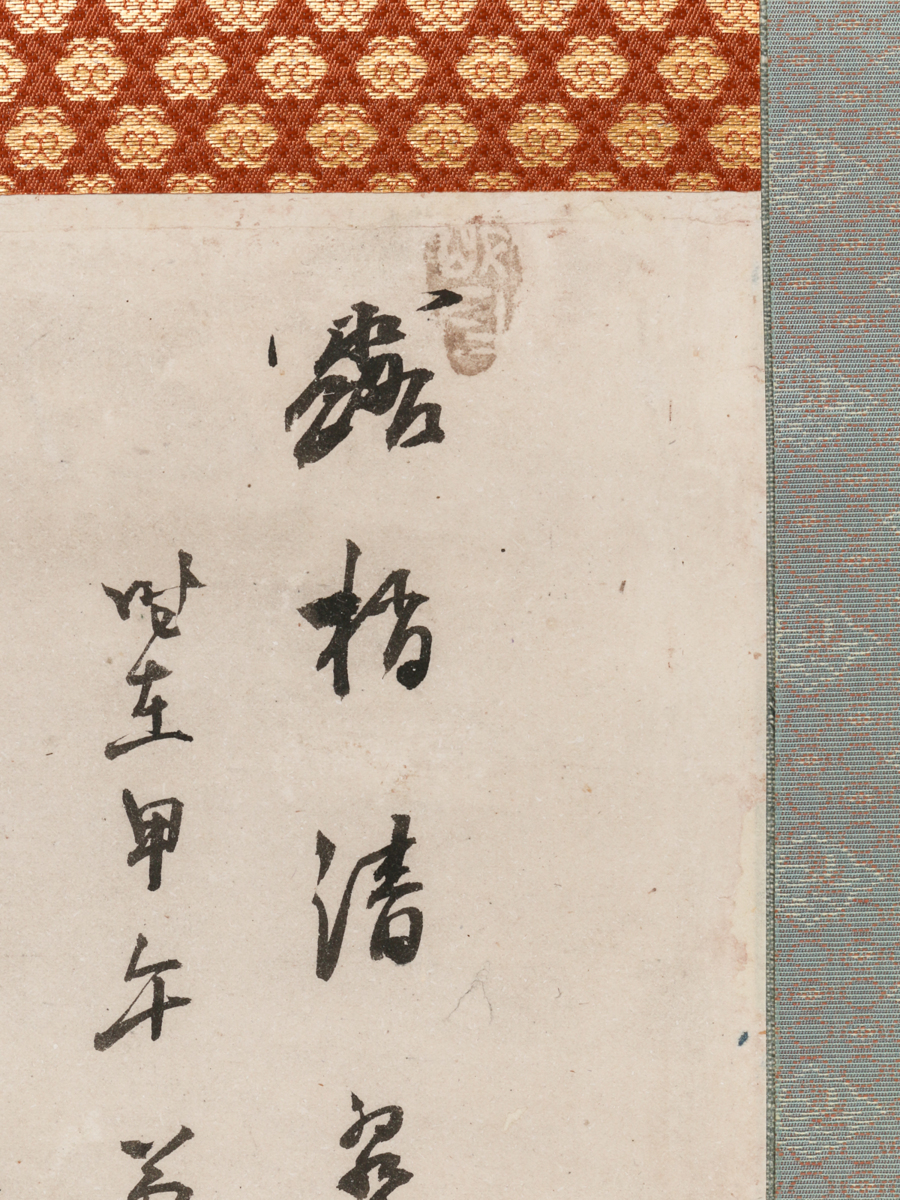 露梢清
時在甲午